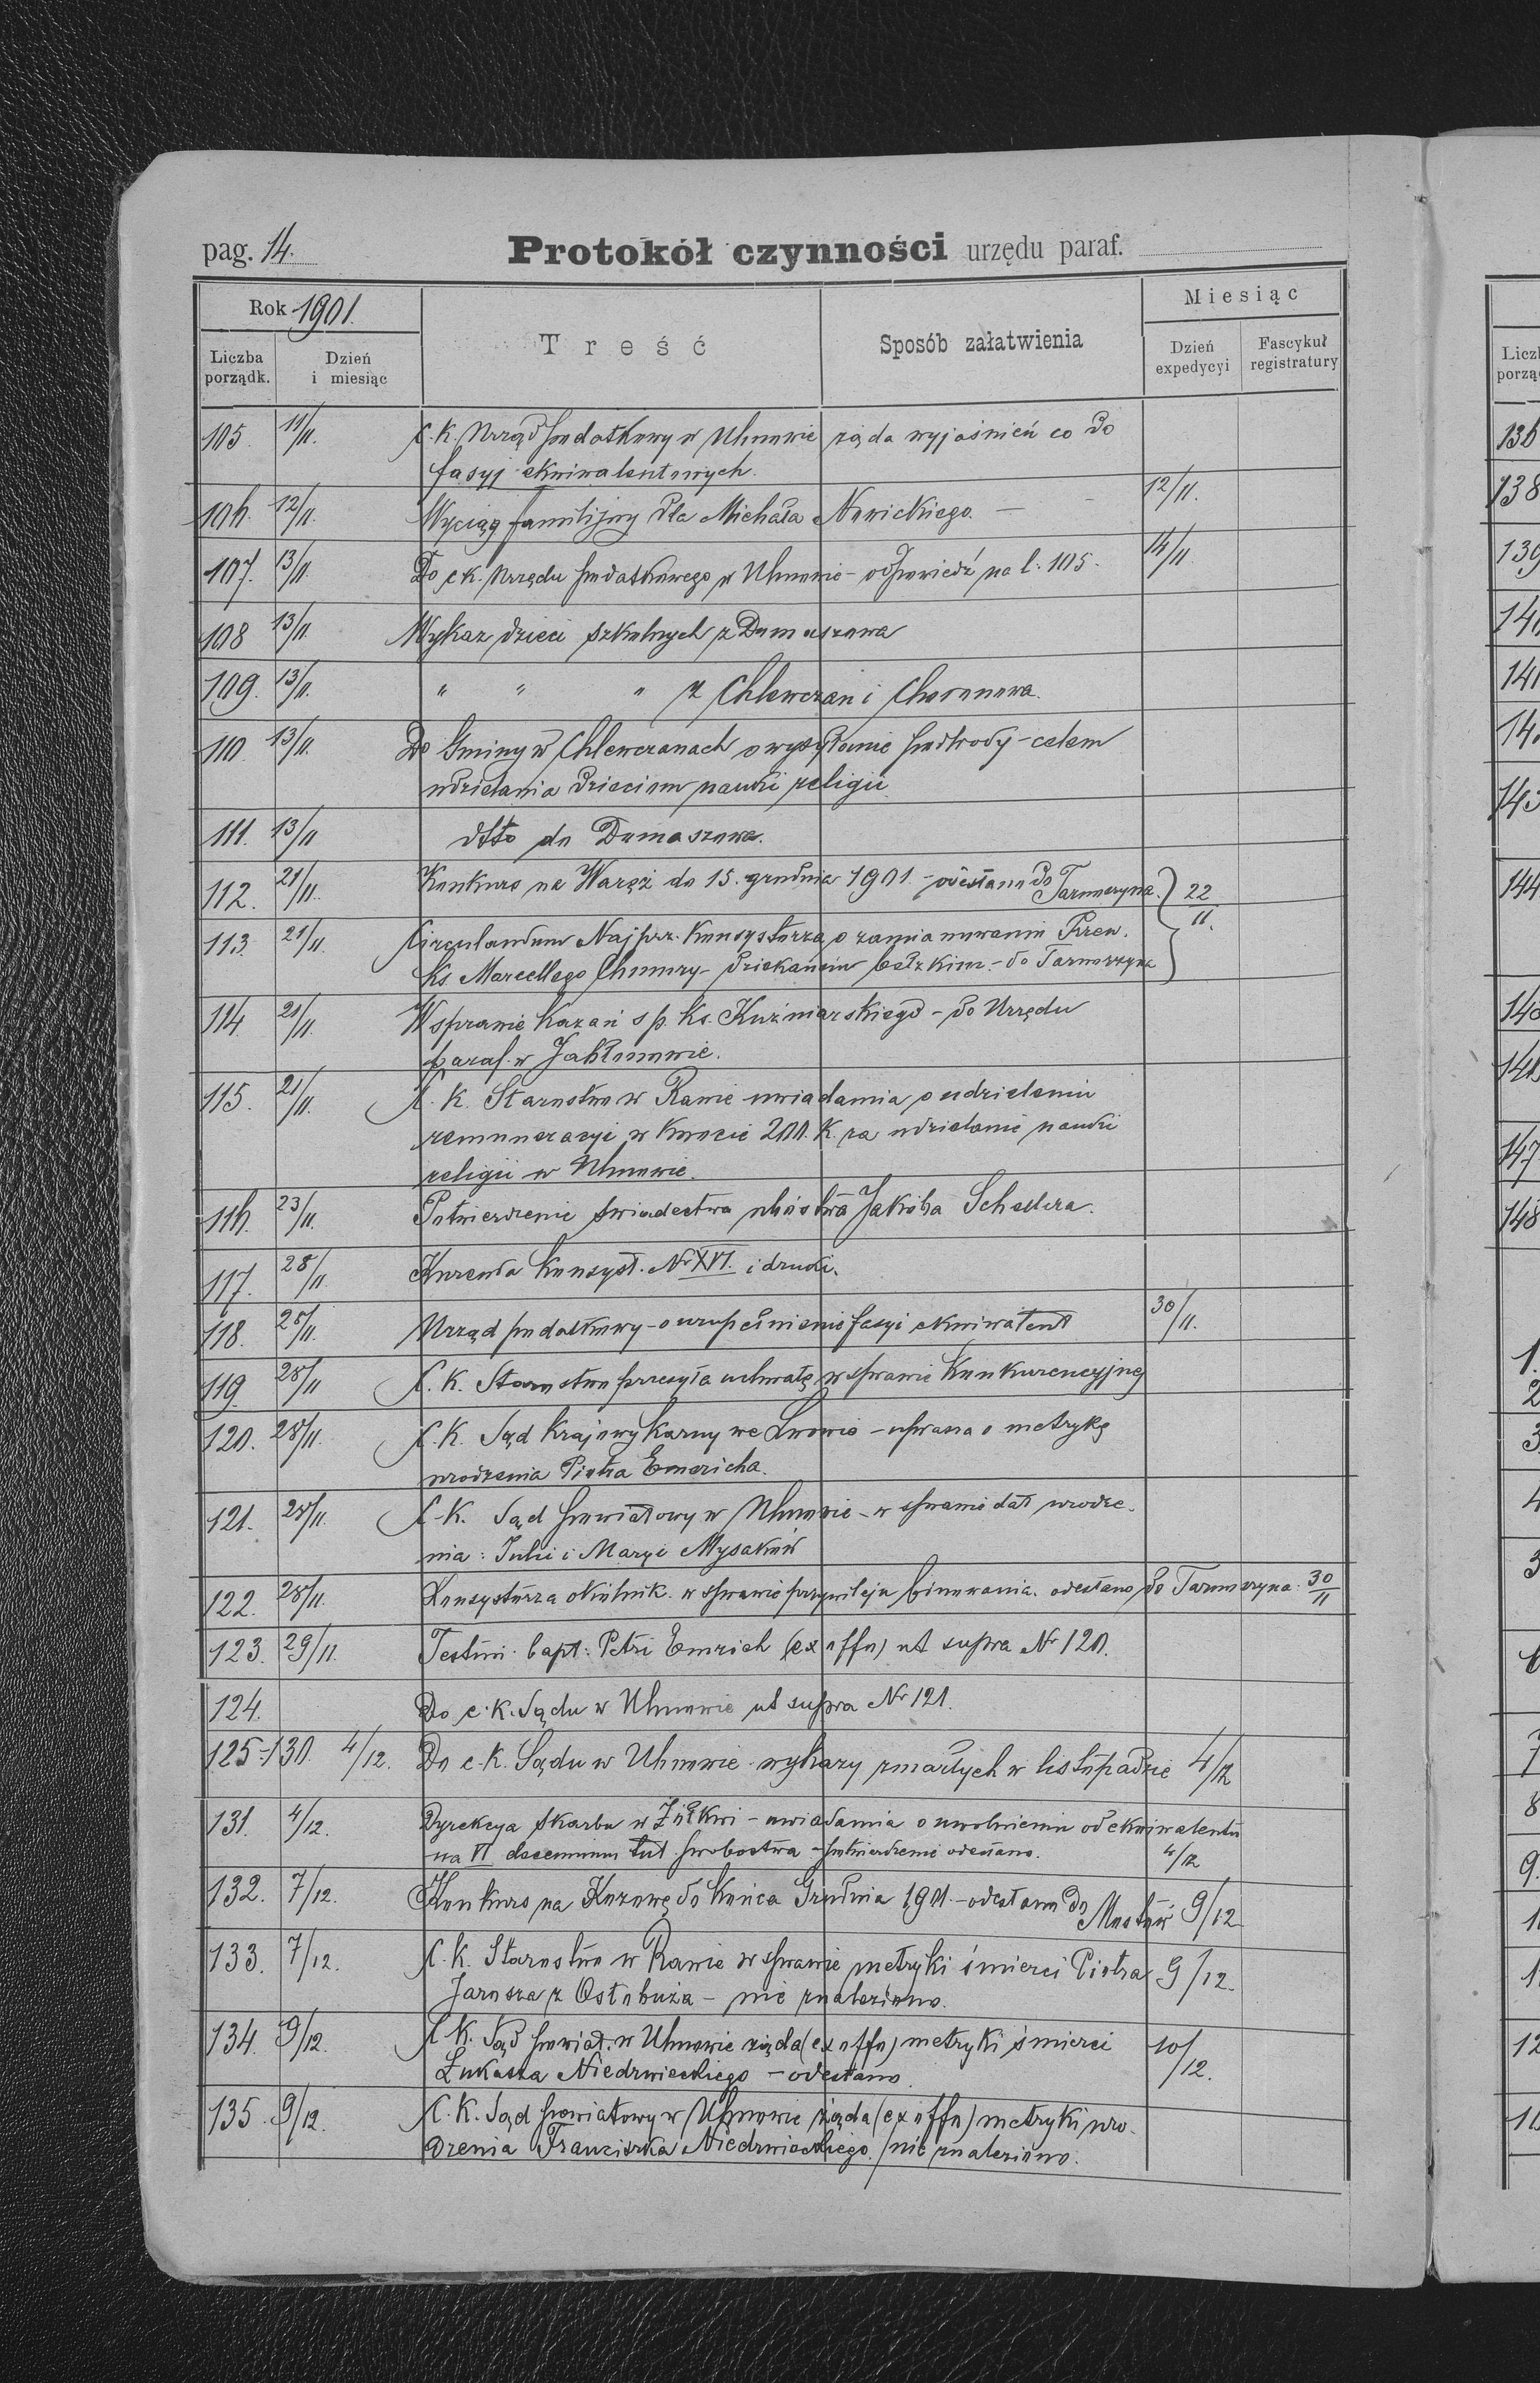 pag. 14.
Protokół czynności urzędu paraf.
Rok 1901.
Treść
Sposób załatwienia
Miesiąc
Liczba porządk.
Dzień i miesiąc
Dzień expedycyi
Fascykuł registratury
105. 11/11. C. K. Urząd podatkowy w Uhnowie żąda wyjaśnień co do
fasyj ekwiwalentowych.
106. 12/11. Wyciąg familijny dla Michała Nowickiego. — 12/11.
107. 13/11. Do c k. Urzędu podatkowego w Uhnowie - odpowiedź na l. 105. 14/11
108 13/11. Wykaz dzieci szkolnych z Domaszowa
109. 13/11. " " " z Chlewczan i Choronowa.
110. 13/11. Do Gminy w Chlewczanach o wysyłanie podwody - celem
udzielania dzieciom nauki religii
111. 13/11 dtto do Domaszowa.
112. 21/11. Konkurs na Waręż do 15. grudnia 1901. - odesłano do
Tarnoszyna. 22/11.
113. 21/11. Circulandum Najprz. Konsystorza o zamianowaniu Przew.
Ks Marcellego Chmury - dziekanem bełzkim. - do Tarnoszyna
114. 21/11. W sprawie kazań s p. Ks. Kuźniarskiego - do Urzędu
paraf. w Jabłonowie.
115. 21/11. C. K. Starostwo w Rawie uwiadamia o udzieleniu
remuneracyi w kwocie 200. K. za udzielanie nauki
religii w Uhnowie.
116. 23/11. Potwierdzenie świadectwa ubóstwa Jakóba Schellera.
117. 28/11. Kurenda Konsyst. Nr XVI. i druki.
118. 28/11. Urząd podatkowy - o uzupełnienie fasyi ekwiwalent 30/11.
119. 28/11 C. K. Starostwo przesyła uchwałę w sprawie konkurencyjnej
120. 28/11. C. K. Sąd krajowy karny we Lwowie - uprasza o metrykę
urodzenia Piotra Emericha.
121. 28/11. C. K. Sąd powiatowy w Uhnowie - w sprawie dat urodze-
nia: Julii i Maryi Mysaków
122. 28/11. Konsystorza okólnik. w sprawie przywileju binowania. odesłano do Tarnoszyna. 30/11
123. 29/11. Testim. bapt: Petri Emrich (ex offo) ut supra Nr 120.
124. Do c. k. Sądu w Uhnowie ut supra Nr 121.
125-130. 4/12. Do c. k. Sądu w Uhnowie wykazy zmarłych w listopadzie 4/12
131. 4/12. Dyrekcya skarbu w Żółkwi - uwiadamia o uwolnieniu od ekwiwalentu
na VI decennium tut. probostwa - potwierdzenie odesłano. 4/12
132. 7/12. Konkurs na Kozowę do końca Grudnia 1901. - odesłano do
Mostów 9/12
133. 7/12. C. K. Starostwo w Rawie w sprawie metryki śmierci Piotra 9/12.
Jarosza z Ostobuża - nie znaleziono.
134. 9/12. C K. Sąd powiat. w Uhnowie żąda (ex offo) metryki śmierci 10/12.
Łukasza Niedzwieckiego - odesłano
135. 9/12. C. K. Sąd powiatowy w Uhnowie żąda (ex offo) metryki uro-
dzenia Franciszka Niedzwieckiego. / nie znaleziono.